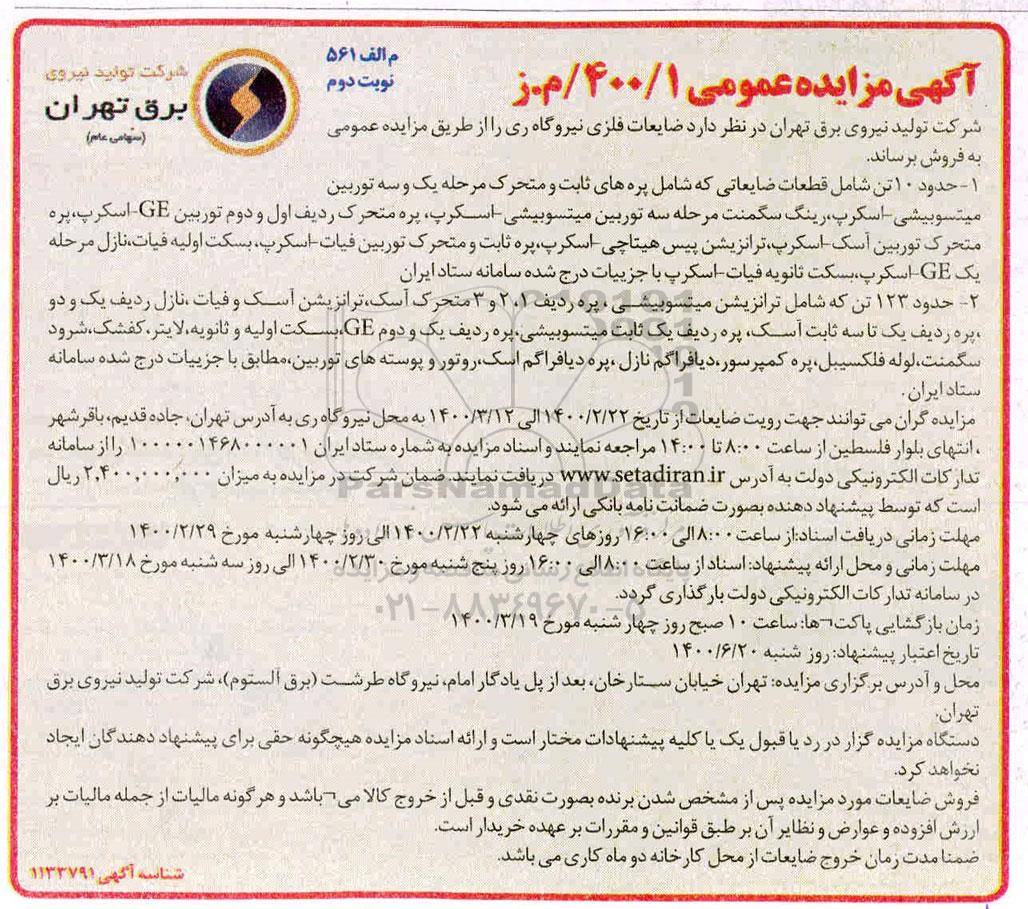 آگهی مزایده عمومی ۴۰۰/۱/م.ز
م الف ۵۶۱
نوبت دوم
شرکت تولید نیروی
برق تهران
(سهامی عام)
شرکت تولید نیروی برق تهران در نظر دارد ضایعات فلزی نیروگاه ری را از طریق مزایده عمومی
به فروش برساند.
۱-حدود ۱۰ تن شامل قطعات ضایعاتی که شامل پره های ثابت و متحرک مرحله یک و سه توربین
میتسوبیشی-اسکرپ،رینگ سگمنت مرحله سه توربین میتسوبیشی-اسکرپ، پره متحرک ردیف اول و دوم توربین GE-اسکرپ،پره
متحرک توربین آسک-اسکرپ،ترانزیشن پیس هیتاچی-اسکرپ،پره ثابت و متحرک توربین فیات-اسکرپ،بسکت اولیه فیات،نازل مرحله
یک GE-اسکرپ،بسکت ثانویه فیات-اسکرپ با جزییات درج شده سامانه ستاد ایران
۲- حدود ۱۲۳ تن که شامل ترانزیشن میتسوبیشی ، پره ردیف ۱، ۲ و ۳ متحرک آسک،ترانزیشن آسک و فیات ،نازل ردیف یک و دو
،پره ردیف یک تا سه ثابت آسک، پره ردیف یک ثابت میتسوبیشی،پره ردیف یک و دوم GE،بسکت اولیه و ثانویه،لایتر،کفشک،شرود
سگمنت،لوله فلکسیبل،پره کمپرسور،دیافراگم نازل ،پره دیافراگم اسک،روتور و پوسته های توربین،مطابق با جزییات درج شده سامانه
ستاد ایران .
مزایده گران می توانند جهت رویت ضایعات از تاریخ ۱۴۰۰/۲/۲۲ الی ۱۴۰۰/۳/۱۲ به محل نیروگاه ری به آدرس تهران، جاده قدیم، باقرشهر
، انتهای بلوار فلسطین از ساعت ۸:۰۰ تا ۱۴:۰۰ مراجعه نمایند و اسناد مزایده به شماره ستاد ایران ۱۰۰۰۰۰۱۴۶۸۰۰۰۰۰۱ را از سامانه
تدارکات الکترونیکی دولت به آدرس www.setadiran.ir دریافت نمایند. ضمان شرکت در مزایده به میزان ۲,۴۰۰,۰۰۰,۰۰۰ ریال
است که توسط پیشنهاد دهنده بصورت ضمانت نامه بانکی ارائه می شود.
مهلت زمانی دریافت اسناد:از ساعت ۸:۰۰ الی ۱۶:۰۰ روزهای چهارشنبه ۱۴۰۰/۲/۲۲ الی روز چهارشنبه مورخ ۱۴۰۰/۲/۲۹
مهلت زمانی و محل ارائه پیشنهاد: اسناد از ساعت ۸:۰۰ الی ۱۶:۰۰ روز پنج شنبه مورخ ۱۴۰۰/۲/۳۰ الی روز سه شنبه مورخ ۱۴۰۰/۳/۱۸
در سامانه تدارکات الکترونیکی دولت بارگذاری گردد.
زمان بازگشایی پاکت¬ها: ساعت ۱۰ صبح روز چهارشنبه مورخ ۱۴۰۰/۳/۱۹
تاریخ اعتبار پیشنهاد: روز شنبه ۱۴۰۰/۶/۲۰
محل و آدرس برگزاری مزایده: تهران خیابان ستارخان، بعد از پل یادگار امام، نیروگاه طرشت (برق آلستوم)، شرکت تولید نیروی برق
تهران.
دستگاه مزایده گزار در رد یا قبول یک یا کلیه پیشنهادات مختار است و ارائه اسناد مزایده هیچگونه حقی برای پیشنهاد دهندگان ایجاد
نخواهد کرد.
فروش ضایعات مورد مزایده پس از مشخص شدن برنده بصورت نقدی و قبل از خروج کالا می¬باشد و هرگونه مالیات از جمله مالیات بر
ارزش افزوده و عوارض و نظایر آن بر طبق قوانین و مقررات بر عهده خریدار است.
ضمنا مدت زمان خروج ضایعات از محل کارخانه دو ماه کاری می باشد.
شناسه آگهی ۱۱۳۳۷۹۱
ParsNamadData
۰۲۱-۸۸۳۴۹۶۷۰-۵